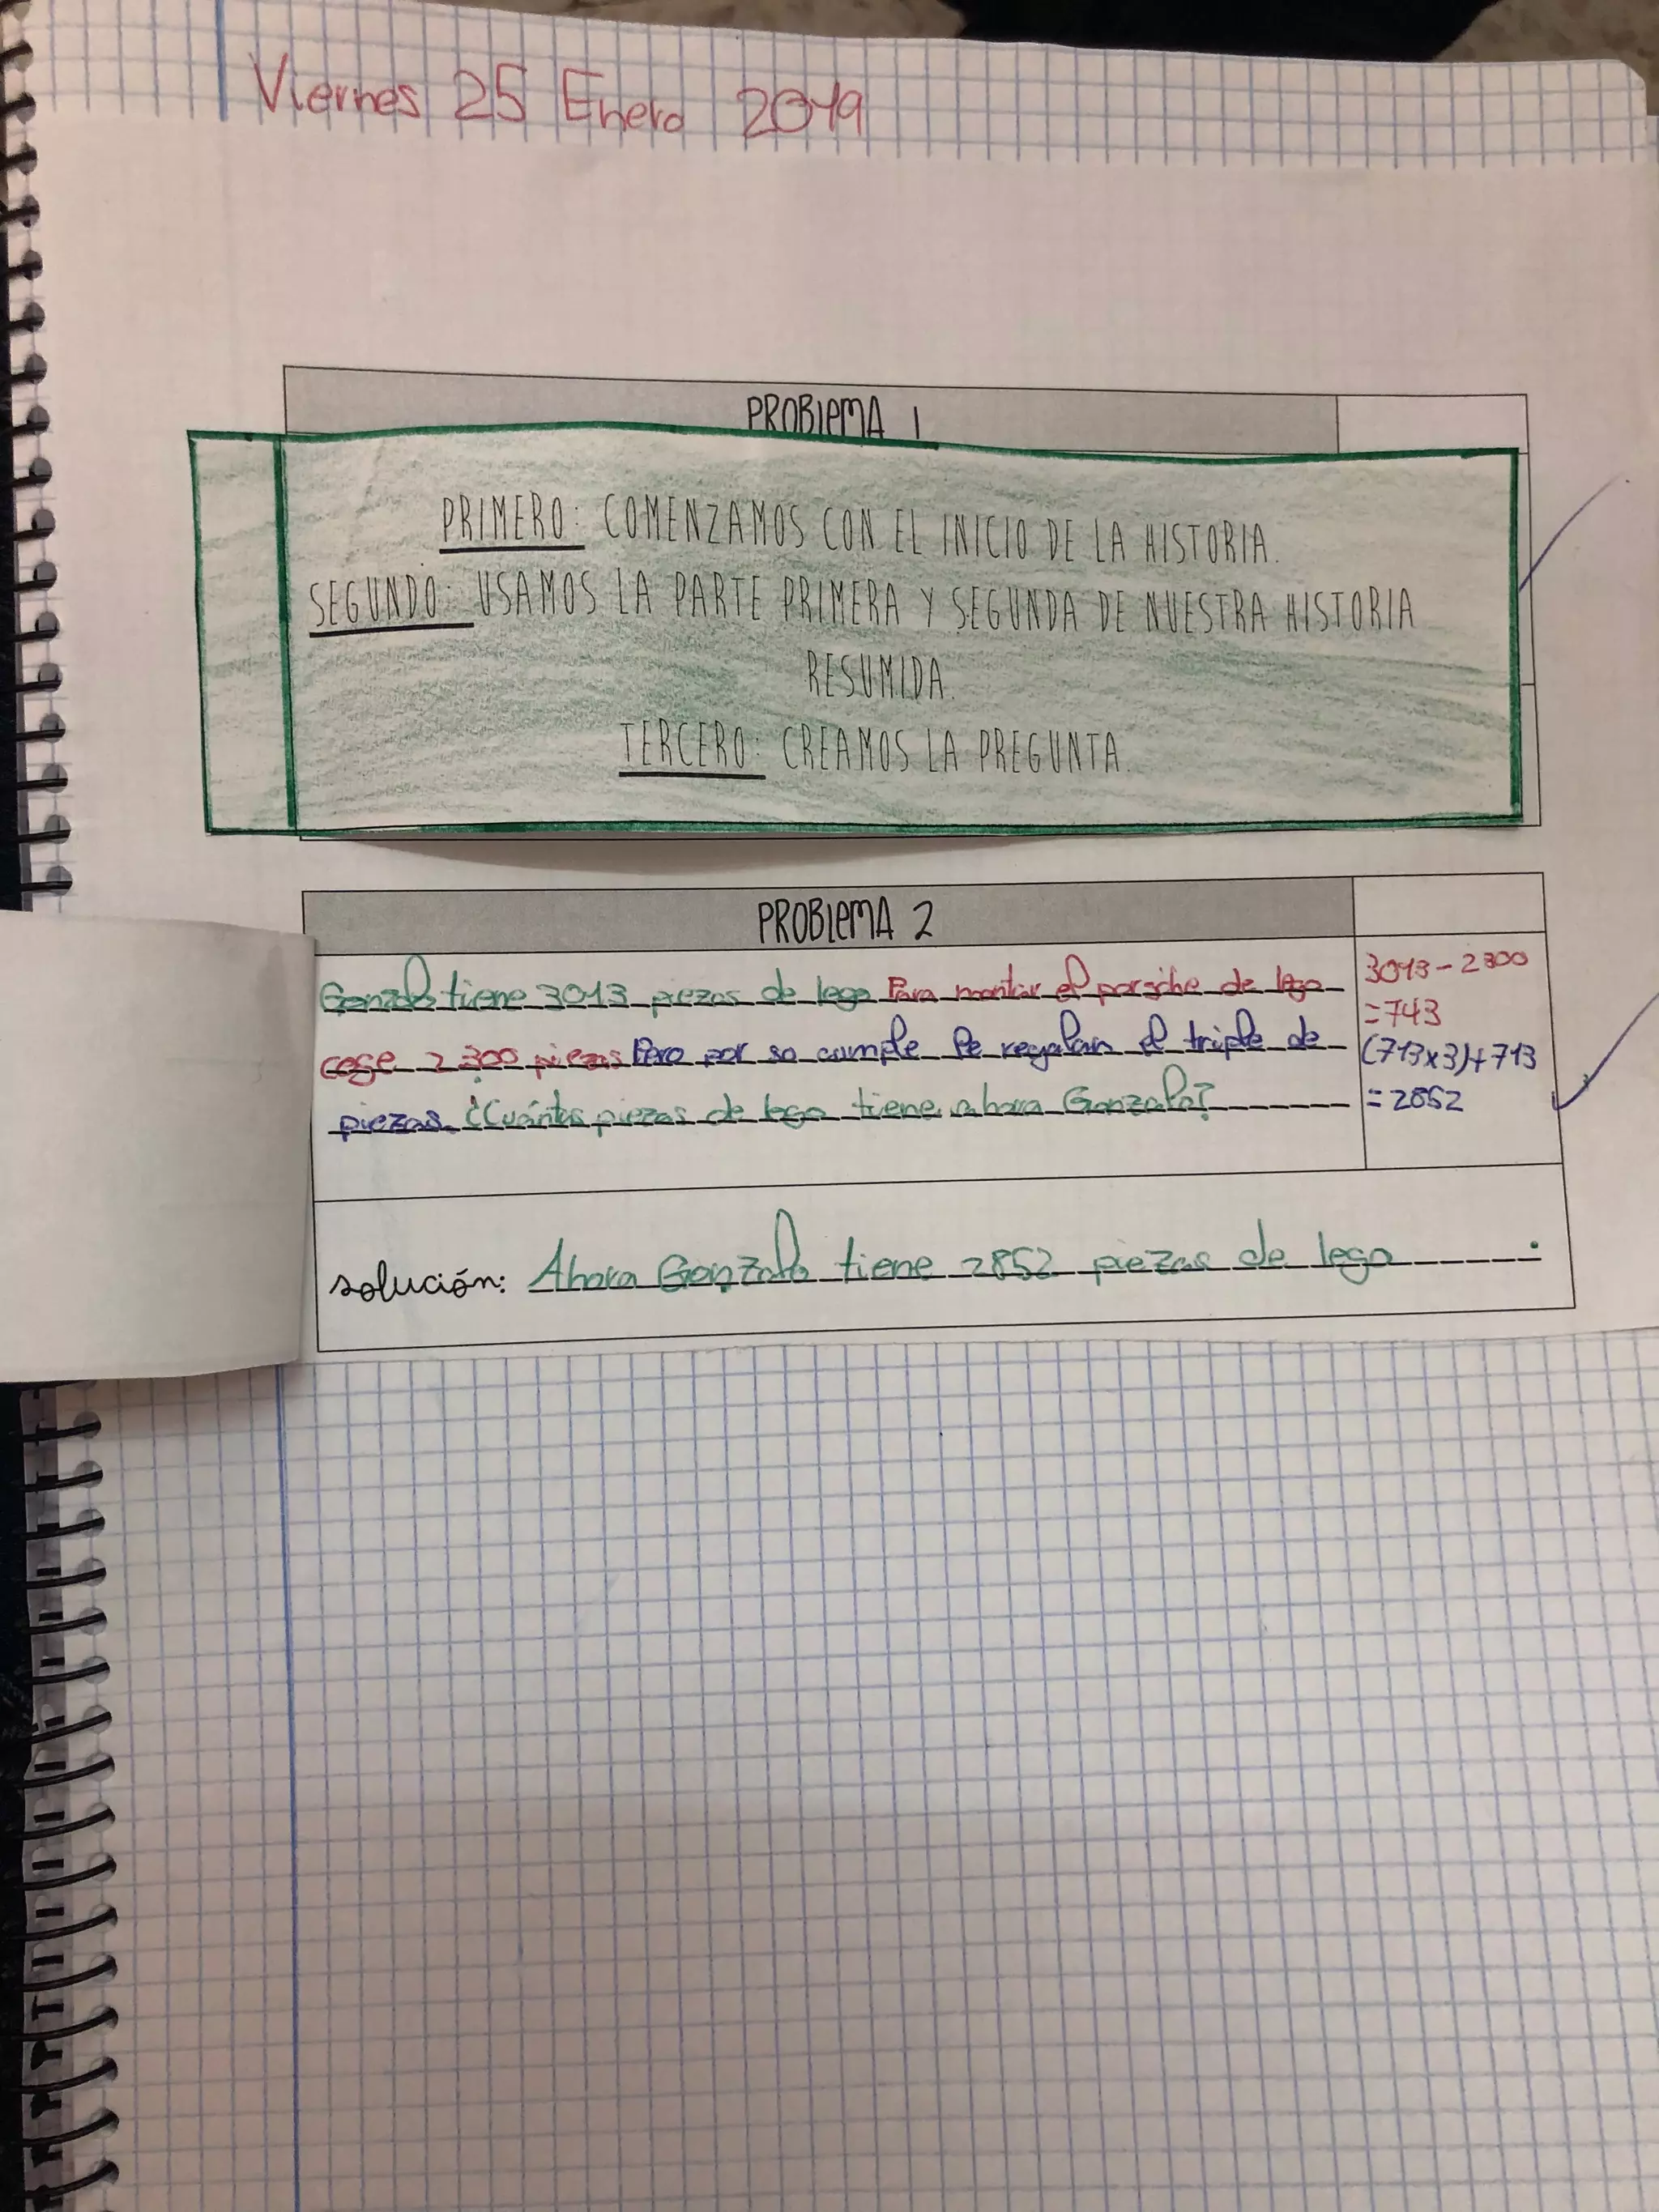 Viernes 25 Enero 2019
PROBLEMA 1
PRIMERO: COMENZAMOS CON EL INICIO DE LA HISTORIA.
SEGUNDO: USAMOS LA PARTE PRIMERA Y SEGUNDA DE NUESTRA HISTORIA
RESUMIDA.
TERCERO: CREAMOS LA PREGUNTA.
PROBLEMA 2
Gonzalo tiene 3013 piezas de lego Para montar el porsche de lego
coge 2300 piezas Pero por su cumple le regalan el triple de
piezas. ¿Cuántas piezas de lego tiene ahora Gonzalo?
3013-2300
=713
(713x3)+713
=2852
solución: Ahora Gonzalo tiene 2852 piezas de lego.